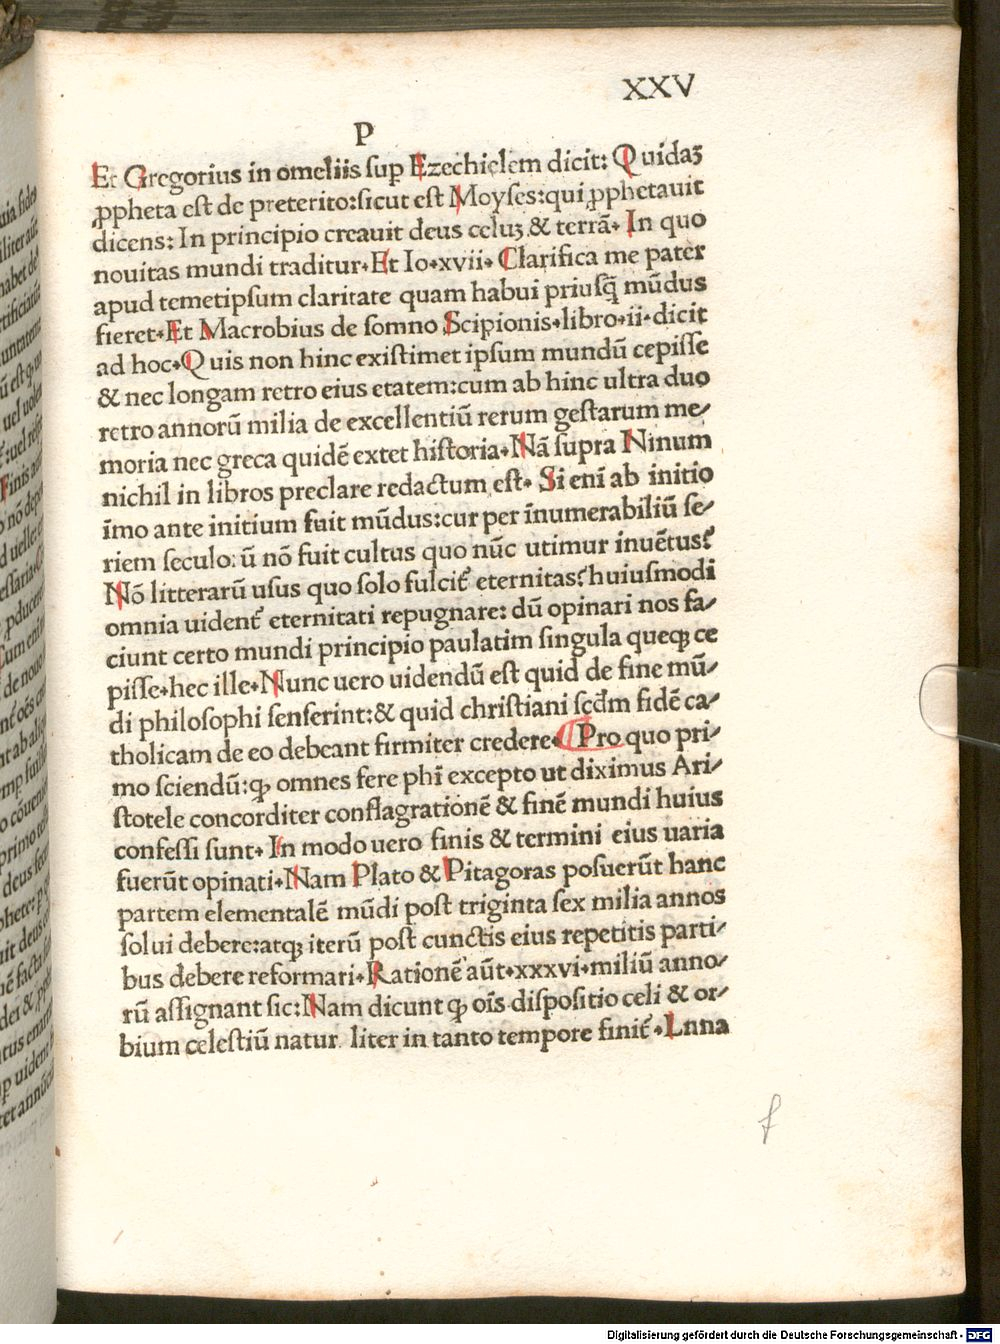 XXV
P
Et Gregorius in omeliis sup Ezechielem dicit: Quidaꝫ
ꝓpheta est de preterito: sicut est Moyses: qui ꝓphetauit
dicens: In principio creauit deus celuꝫ & terrã. In quo
nouitas mundi traditur. Et Io.xvii. Clarifica me pater
apud temetipsum claritate quam habui priusq̃ mũdus
fieret. Et Macrobius de somno Scipionis.libro.ii.dicit
ad hoc. Quis non hinc existimet ipsum mundũ cepisse
& nec longam retro eius etatem: cum ab hinc ultra duo
retro annorũ milia de excellentiũ rerum gestarum me/
moria nec greca quidẽ extet historia. Nã supra Ninum
nichil in libros preclare redactum est. Si eni ab initio
ĩmo ante initium fuit mũdus: cur per ĩnumerabiliũ se/
riem seculo. ũ nõ fuit cultus quo nũc utimur inuẽtus?
Nõ litterarũ usus quo solo fulcit̃ eternitas? huiusmodi
omnia uident̃ eternitati repugnare: dũ opinari nos fa/
ciunt certo mundi principio paulatim singula queqꝫ ce
pisse. hec ille. Nunc uero uidendũ est quid de fine mũ/
di philosophi senserint: & quid christiani scd̃m fidẽ ca/
tholicam de eo debeant firmiter credere. ¶ Pro quo pri/
mo sciendũ: ꝙ omnes fere phĩ excepto ut diximus Ari/
stotele concorditer conflagrationẽ & finẽ mundi huius
confessi sunt. In modo uero finis & termini eius uaria
fuerũt opinati. Nam Plato & Pitagoras posuerũt hanc
partem elementalẽ mũdi post triginta sex milia annos
solui debere: atqꝫ iterũ post cunctis eius repetitis parti/
bus debere reformari. Rationẽ aũt.xxxvi.miliũ anno/
rũ assignant sic: Nam dicunt ꝙ oĩs dispositio celi & or/
bium celestiũ natur liter in tanto tempore finit̃. Lnna
f
Digitalisierung gefördert durch die Deutsche Forschungsgemeinschaft - DFG